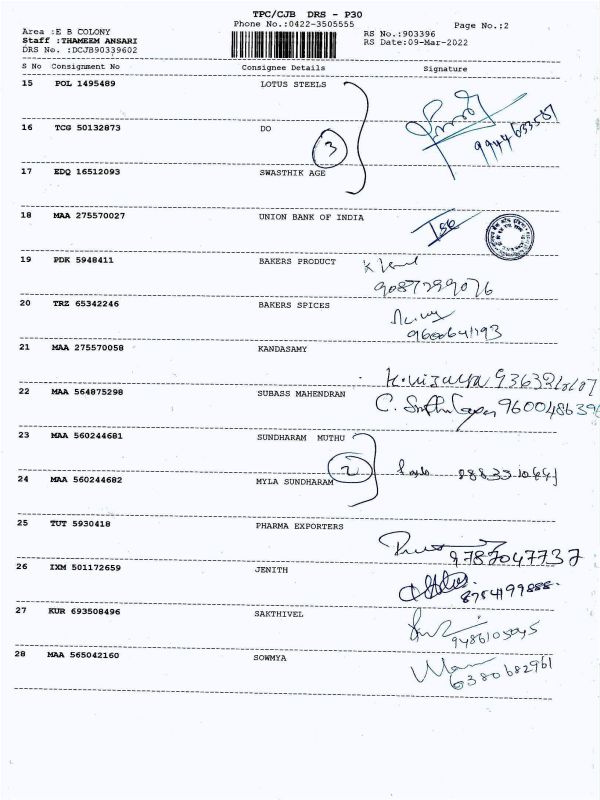 TPC/CJB DRS - P30
Phone No.:0422-3505555
Page No.:2
Area :E B COLONY
Staff :THAMEEM ANSARI
DRS No. :DCJB90339602
RS No.:903396
RS Date:09-Mar-2022
S No Consignment No Consignee Details Signature
15 POL 1495489 LOTUS STEELS
16 TCG 50132873 DO
3
9944633587
17 EDQ 16512093 SWASTHIK AGE
18 MAA 275570027 UNION BANK OF INDIA
19 PDK 5948411 BAKERS PRODUCT
9087299076
20 TRZ 65342246 BAKERS SPICES
9600641193
21 MAA 275570058 KANDASAMY
K. VIJAYA
22 MAA 564875298 SUBASS MAHENDRAN
C. 960048639
23 MAA 560244681 SUNDHARAM MUTHU
2
24 MAA 560244682 MYLA SUNDHARAM
25 TUT 5930418 PHARMA EXPORTERS
9787047737
26 IXM 501172659 JENITH
8754199888.
27 KUR 693508496 SAKTHIVEL
9486105045
28 MAA 565042160 SOWMYA
6380682961